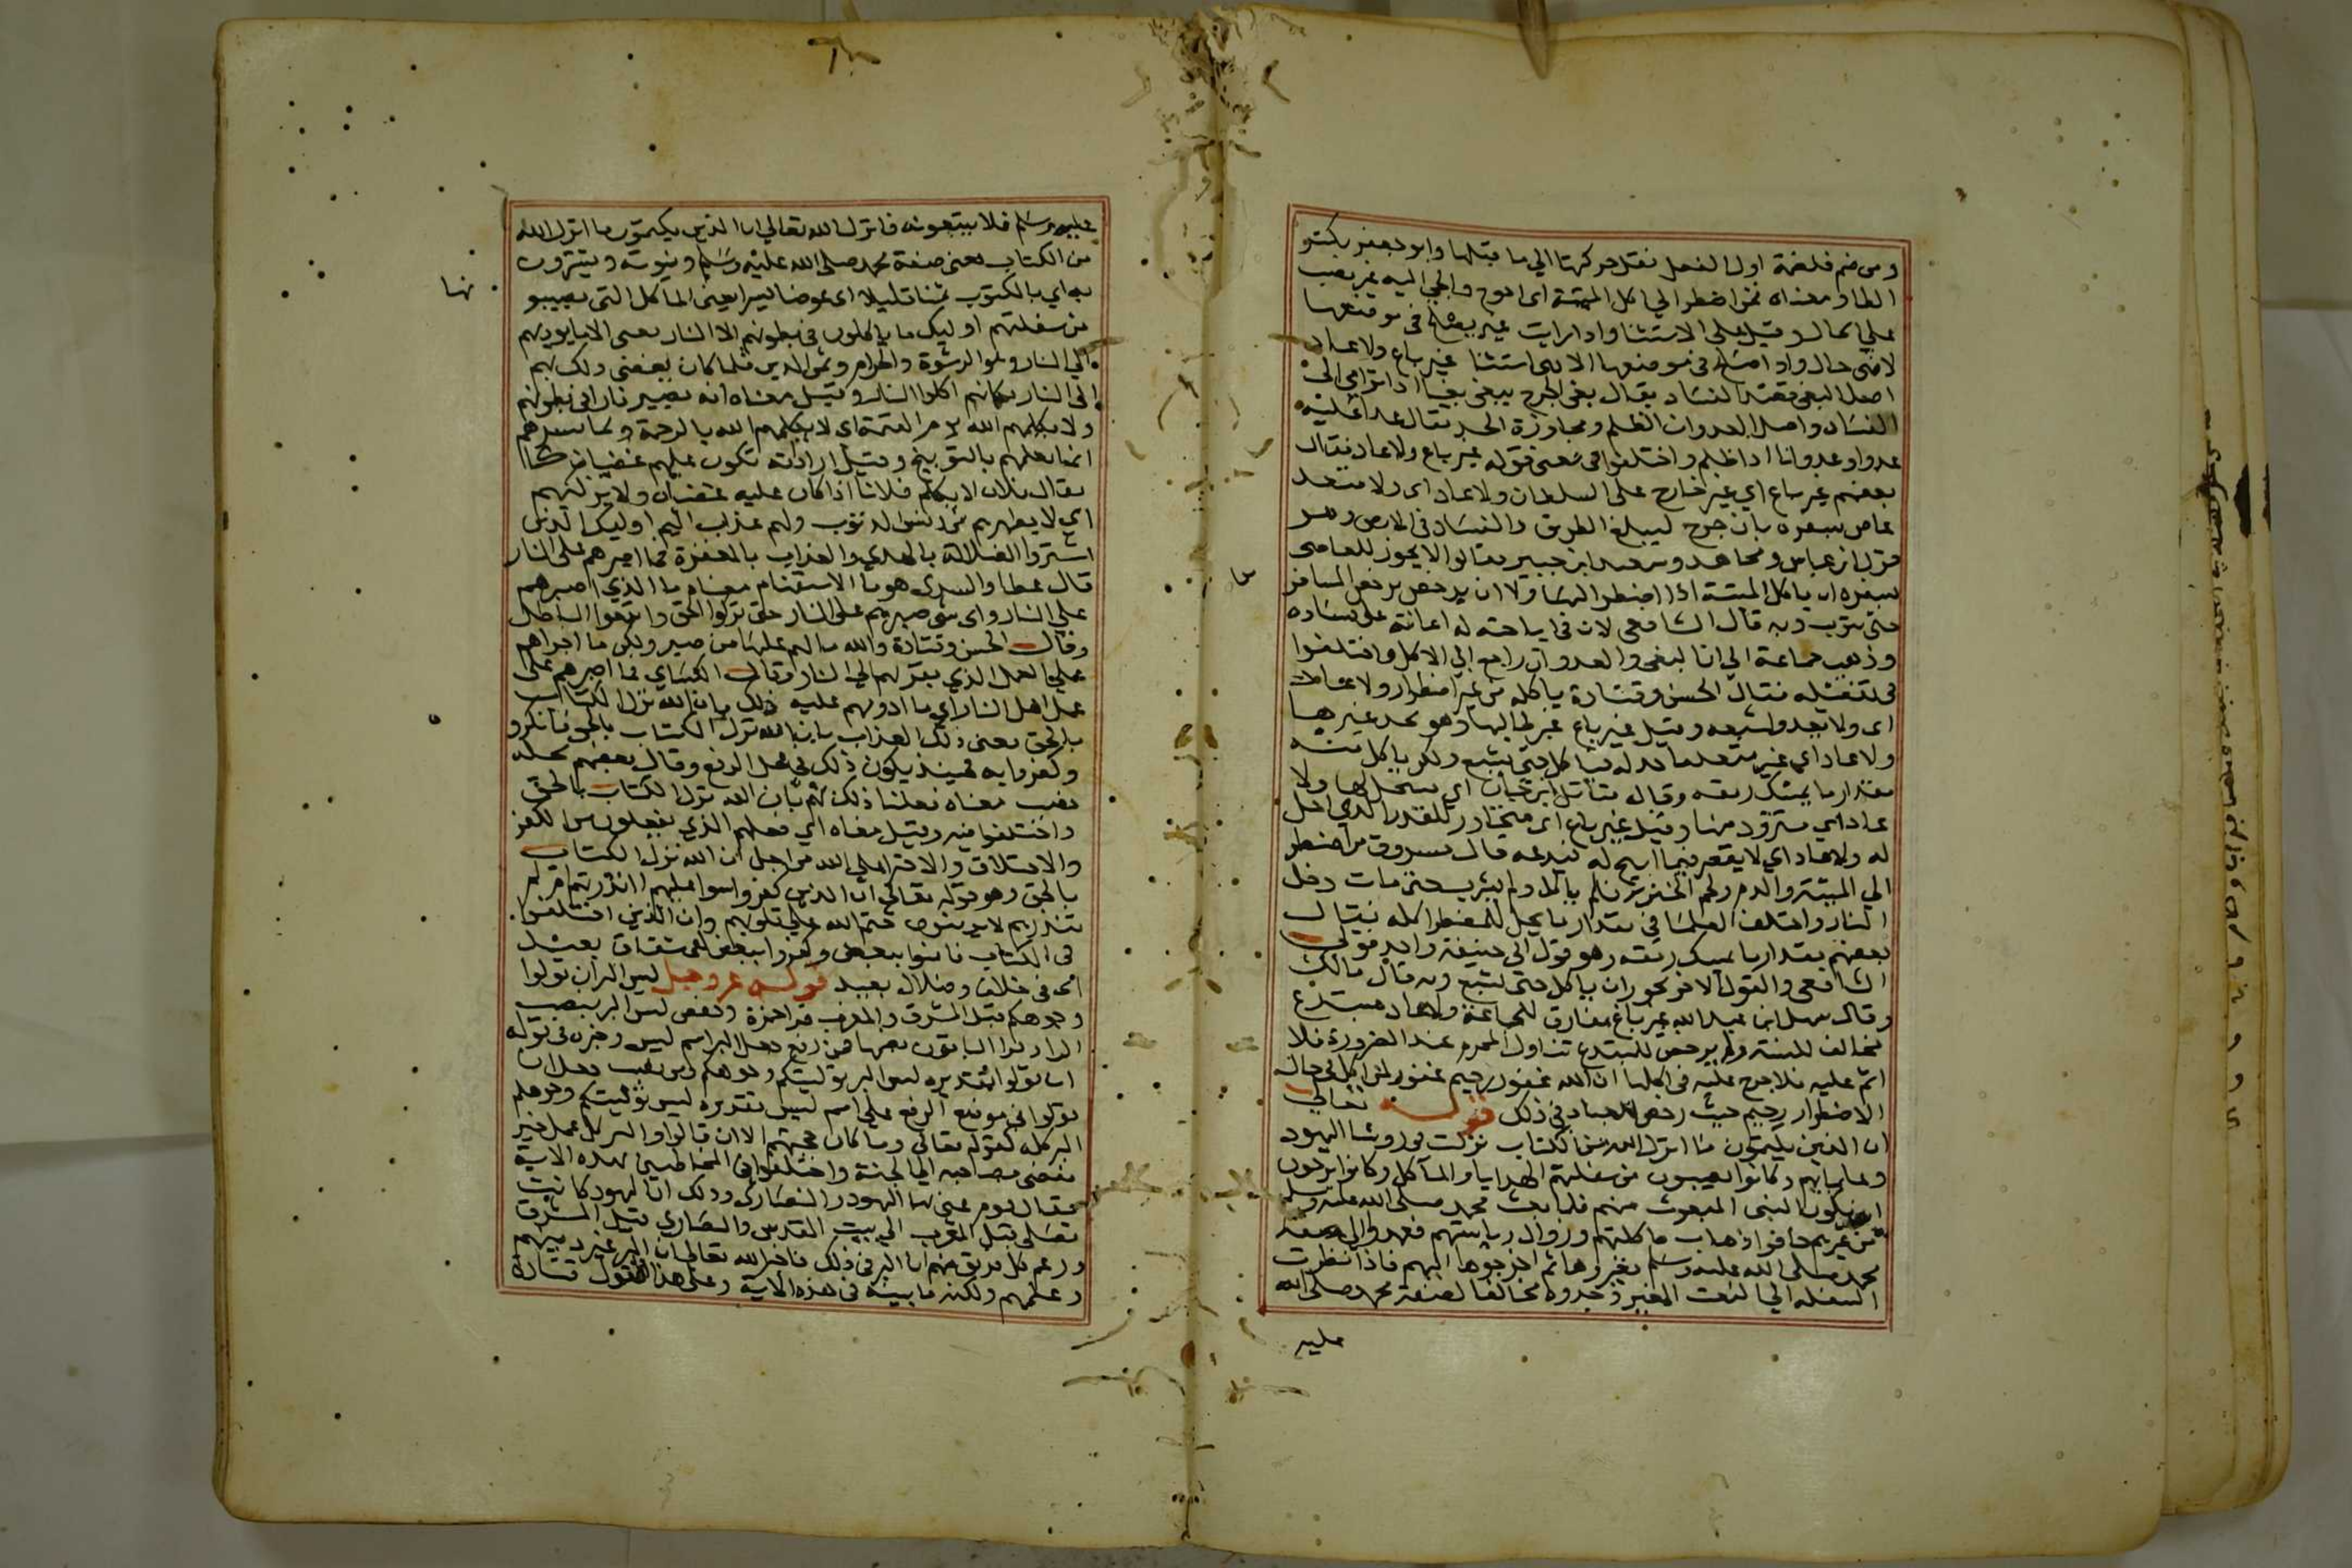 ومن ضم فلضمة اول الفعل نقل حركتها الي ما قبلها وابو جعفر بكسر
الطا ومعناه فمن اضطر الي اكل الميتة اى احوج والجى اليه غير نصب
على الحال وقيل على الاستثنا واذا رايت غير يصلح في موضعها
لا فهى حال واذا صلح في موضعها الا فهى استثنا غير باغ ولا عاد
اصل البغي قصد الفساد يقال بغى الجرح يبغى بغيا اذا ترامي الى
الفساد واصل العدوان الظلم ومجاوزة الحد يقال عدا عليه
عدوا وعدوانا اذا ظلم واختلفوا فى معنى قوله غير باغ ولا عاد فقال
بعضهم غير باغ اي غير خارج على السلطان ولا عاد اى ولا متعد
عاص بسفره بان خرج ليبلغ الطريق والفساد في الارض وهو
قول ابن عباس ومجاهد وسعيد ابن جبير وقالوا لا يجوز للعاصى
بسفره ان ياكل الميتة اذا اضطر اليها ولا ان يترخص برخص المسافر
حتى يتوب وبه قال الشافعى لان في اباحته له اعانة على فساده
وذهب جماعة الي ان البغى والعدوان راجع الي الاكل واختلفوا
في تفصيله فقال الحسن وقتادة ياكله من غير اضطرار ولا عاد
اى ولا يعدو لشبعه وقيل غير باغ غير طالبها وهو يجد غيرها
ولا عاد اي غير متعد ما حد له فياكل حتى يشبع ولكن ياكل منه
مقدار ما يمسك رمقه وقال مقاتل ابن حيان اي مستحل لها ولا
عاد اي متزود منها وقيل غير باغ اى متجاوز للقدر الذي احل
له ولا عاد اي لا يقصر فيما ابيح له فيدعه قال مسروق من اضطر
الي الميتة والدم ولحم الخنزير فلم ياكل ولم يشرب حتى مات دخل
النار واختلف العلما في مقدار ما يحل للمضطر اكله فقال
بعضهم مقدار ما يمسك رمقه وهو قول ابى حنيفة واحد قولى
الشافعى والقول الاخر يجوز ان ياكل حتى يشبع وبه قال مالك
وقال سهل ابن عبد الله غير باغ مفارق للجماعة ولا عاد مبتدع
مخالف للسنة ولم يرخص للمبتدع تناول المحرم عند الضرورة فلا
اثم عليه فلا حرج عليه في اكلها ان الله غفور رحيم غفور لمن اكل في حال
الاضطرار رحيم حيث رخص للعباد في ذلك قوله تعالى
ان الذين يكتمون ما انزل الله من الكتاب نزلت فى روسا اليهود
وعلمايهم وكانوا يصيبون من سفلتهم الهدايا والمآكل وكانوا يرجون
ان يكون النبى المبعوث منهم فلما بعث محمد صلى الله عليه وسلم
من غيرهم خافوا ذهاب ماكلتهم وزوال رياستهم فعمدوا الى صفة
محمد صلى الله عليه وسلم فغيروها ثم اخرجوها اليهم فاذا نظرت
السفلة الي النعت المغير وجدوه مخالفا لصفة محمد صلى الله
عليه
عليه وسلم فلا يتبعونه فانزل الله تعالي ان الذين يكتمون ما انزل الله
من الكتاب يعنى صفة محمد صلى الله عليه وسلم ونبوته ويشترون
به اي بالمكتوب ثمنا قليلا اى عوضا يسيرا يعنى الماكل التى يصيبو
نها
من سفلتهم اوليك ما ياكلون في بطونهم الا النار يعنى الا ما يوديهم
الي النار وهو الرشوة والحرام وثمن الدين فلما كان يفضى ذلك بهم
الى النار فكانهم اكلوا النار وقيل معناه انه يصير نارا في بطونهم
ولا يكلمهم الله يوم القيمة اى لا يكلمهم الله بالرحمة وبما يسرهم
انما يكلمهم بالتوبيخ وقيل اراد به يكون عليهم غضبان كما
يقال فلان لا يكلم فلانا اذا كان عليه غضبان ولا يزكيهم
اي لا يطهرهم من دنس الذنوب ولهم عذاب اليم اوليك الذين
اشتروا الضلالة بالهدي والعذاب بالمغفرة فما اصبرهم على النار
قال عطا والسدى هو ما الاستفهام معناه ما الذي اصبرهم
علي النار واى شى صبرهم على النار حتى تركوا الحق واتبعوا الباطل
وقال الحسن وقتادة والله ما لهم عليها من صبر ولكن ما اجراهم
على العمل الذي يقربهم الى النار وقال الكساي فما اصبرهم على
عمل اهل النار اي ما ادومهم عليه ذلك بان الله نزل الكتاب
بالحق يعنى ذلك العذاب بان الله نزل الكتاب بالحق فانكرو
وكفروا به فحينيذ يكون ذلك في محل الرفع وقال بعضهم محله
نصب معناه فعلنا ذلك بهم بان الله نزل الكتاب بالحق
واختلفوا فيه وقيل معناه اي فعلهم الذي يفعلون من الكفر
والاختلاف والافترا على الله من اجل ان الله نزل الكتاب
بالحق وهو قوله تعالي ان الذين كفروا سوا عليهم اانذرتهم ام لم
تنذرهم لا يومنون ختم الله على قلوبهم وان الذين اختلفوا
فى الكتاب فامنوا ببعض وكفروا ببعض لفى شقاق بعيد
اى فى خلاف وضلال بعيد قوله عز وجل ليس البر ان تولوا
وجوهكم قبل المشرق والمغرب قرا حمزة وحفص ليس البر بنصب
الرا وقرا الباقون برفعها فمن رفع جعل البر اسم ليس وخبره في قوله
ان تولوا تقديره ليس البر توليتكم وجوهكم ومن نصب جعل ان
تولوا فى موضع الرفع على اسم ليس تقديره ليس توليتكم وجوهكم
البر كله كقوله تعالى وما كان حجتهم الا ان قالوا والبر كل عمل خير
يفضى بصاحبه الي الجنة واختلفوا فى المخاطبين بهذه الاية
فقال قوم عنى بها اليهود والنصارى وذلك ان اليهود كانت
تصلى قبل المغرب الي بيت المقدس والنصارى قبل المشرق
وزعم كل فريق منهم ان البر في ذلك فاخبر الله تعالى ان البر غير دينهم
وعملهم ولكنه ما بينه فى هذه الاية وعلى هذا القول قتادة